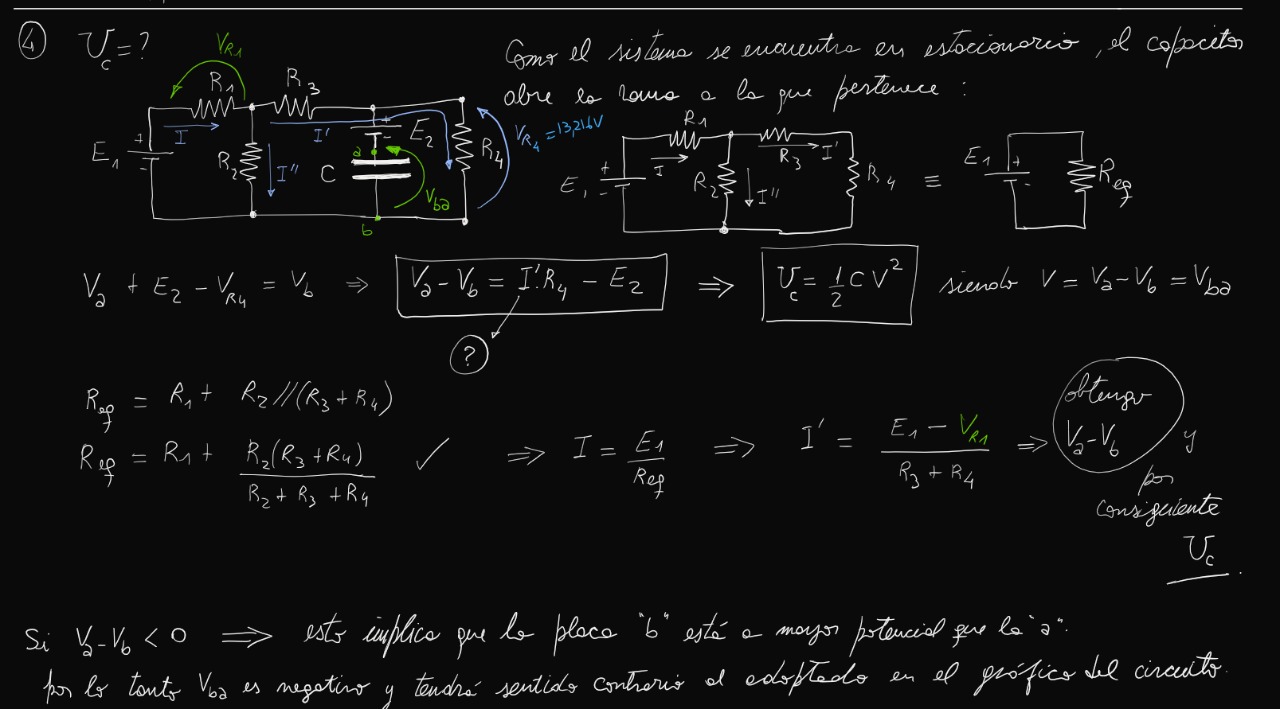 4) U_C = ?
Como el sistema se encuentra en estacionario, el capacitor
abre la rama a la que pertenece :
V_R1
R1 R3
E1 + - I R2 I'' I' + - E2 C a b V_ba R4
V_R4 = 13,216V
E1 + - R1 I R2 I'' R3 I' R4 ≡ E1 + - Req
Va + E2 - V_R4 = Vb ⇒ Va - Vb = I'.R4 - E2 ⇒ U_C = 1/2 C V² siendo V = Va - Vb = V_ba
?
Req = R1 + R2 // (R3 + R4)
Req = R1 + R2(R3 + R4) / (R2 + R3 + R4) ✓ ⇒ I = E1 / Req ⇒ I' = (E1 - V_R1) / (R3 + R4) ⇒ obtengo
Va - Vb y
por
consiguiente
U_C
Si Va - Vb < 0 ⇒ esto implica que la placa "b" está a mayor potencial que la "a".
por lo tanto V_ba es negativo y tendrá sentido contrario al adoptado en el gráfico del circuito.